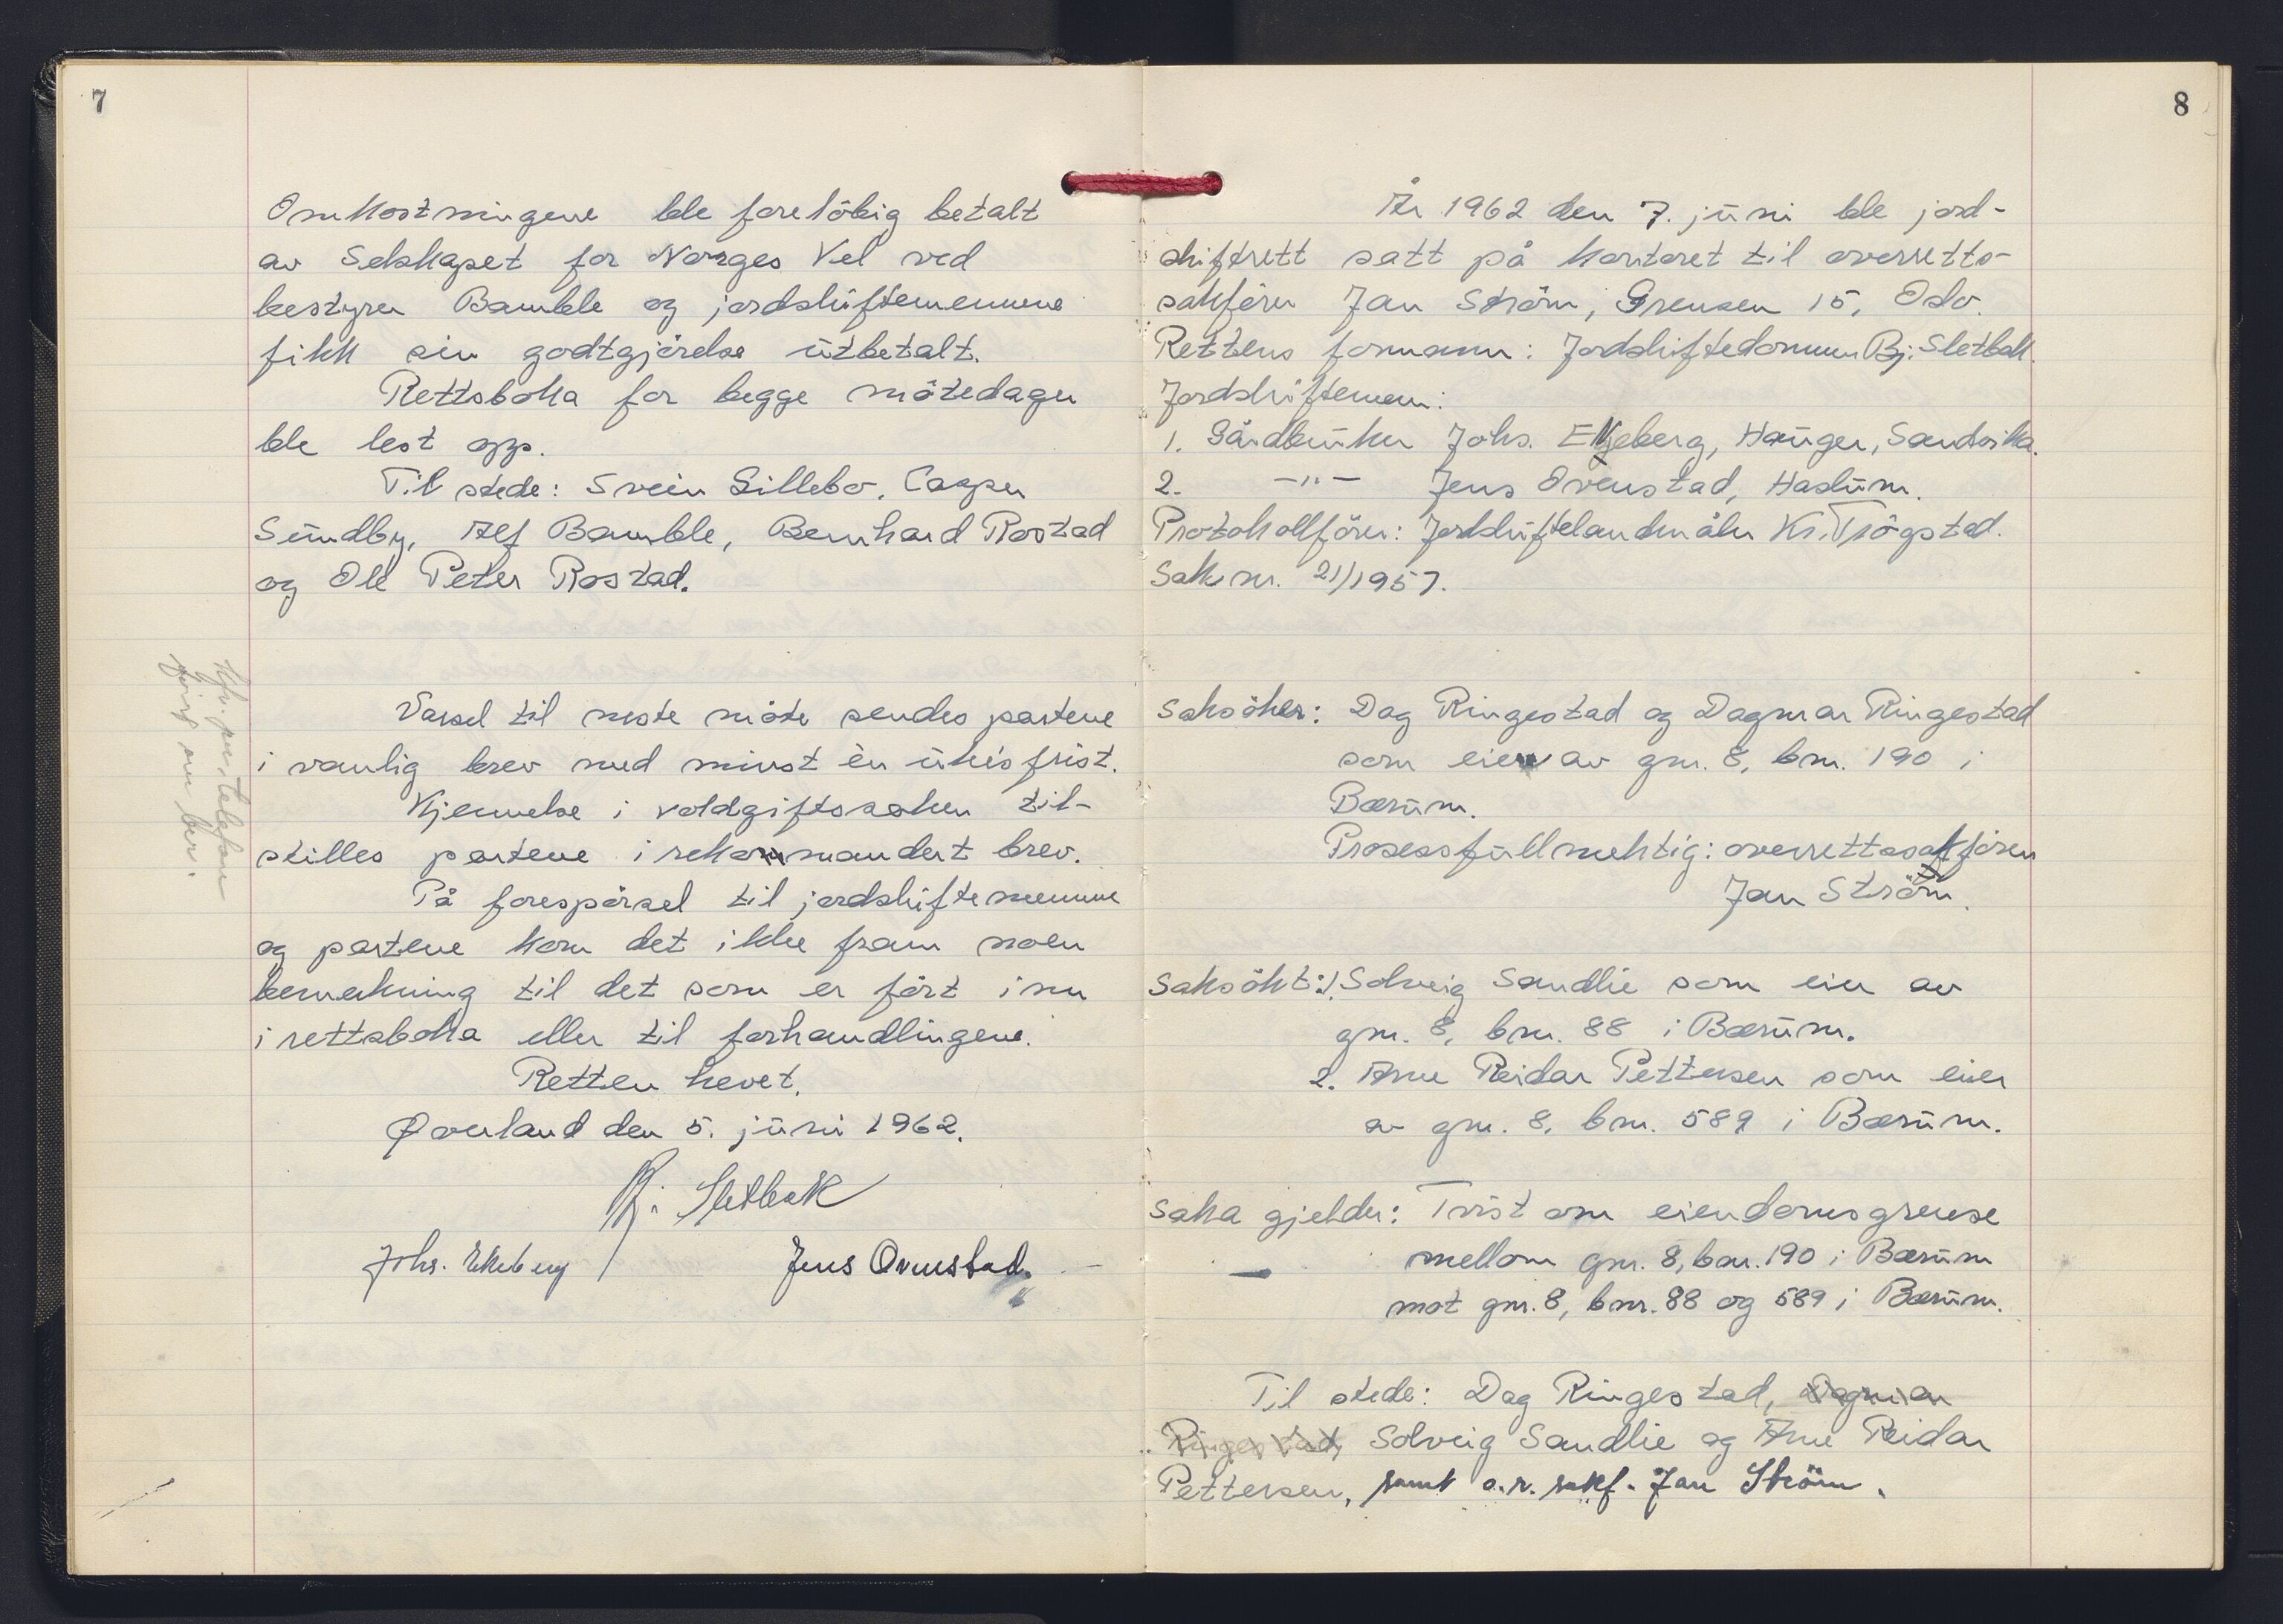 7
Omkostningene ble foreløbig betalt
av Selskapet for Norges Vel ved
bestyrer Bamble og jordskiftemennene
fikk sin godtgjörelse ütbetalt.
Rettsboka for begge mötedager
ble lest opp.
Til stede: Svein Sillebo, Casper
Sündby, Alf Bamble, Bernhard Rostad
og Ole Peter Rostad.
Varsel til neste möte sendes partene
i vanlig brev med minst èn ükes frist.
Kjennelse i voldgiftssaken til-
stilles partene i rekommandert brev.
På forespörsel til jordskiftemennene
og partene kom det ikke fram noen
bemerkning til det som er fört inn
i rettsboka eller til forhandlingene.
Retten hevet.
Øverland den 5. jüni 1962.
Bj. Sletbak
Johs. Ekeberg Jens Ovenstad.
pr. telefon
brev.
8
År 1962 den 7. jüni ble jord-
skiftrett satt på kontoret til overretts-
sakförer Jan Ström, Grensen 15, Oslo.
Rettens formann: Jordskiftedommer Bj. Sletbak.
Jordskiftemenn:
1. Gårdbrüker Johs. Ekeberg, Haüger, Sandvika.
2. -"- Jens Ovenstad, Haslüm.
Protokollförer: Jordskiftelandmåler Kr. Trögstad.
Sak nr. 21/1957.
Saksöker: Dag Ringestad og Dagmar Ringestad
som eier av gnr. 8, bnr. 190 i
Bærüm.
Prosessfüllmektig: overrettssakförer
Jan Ström.
Saksökt: 1. Solveig Sandlie som eier av
gnr. 8, bnr. 88 i Bærüm.
2. Arne Reidar Pettersen som eier
av gnr. 8, bnr. 589 i Bærüm.
Saka gjelder: Tvist om eiendomsgrense
mellom gnr. 8, bnr. 190 i Bærüm
mot gnr. 8, bnr. 88 og 589 i Bærüm.
Til stede: Dag Ringestad, Dagmar
Ringestad, Solveig Sandlie og Arne Reidar
Pettersen, samt o.r. sakf. Jan Ström.